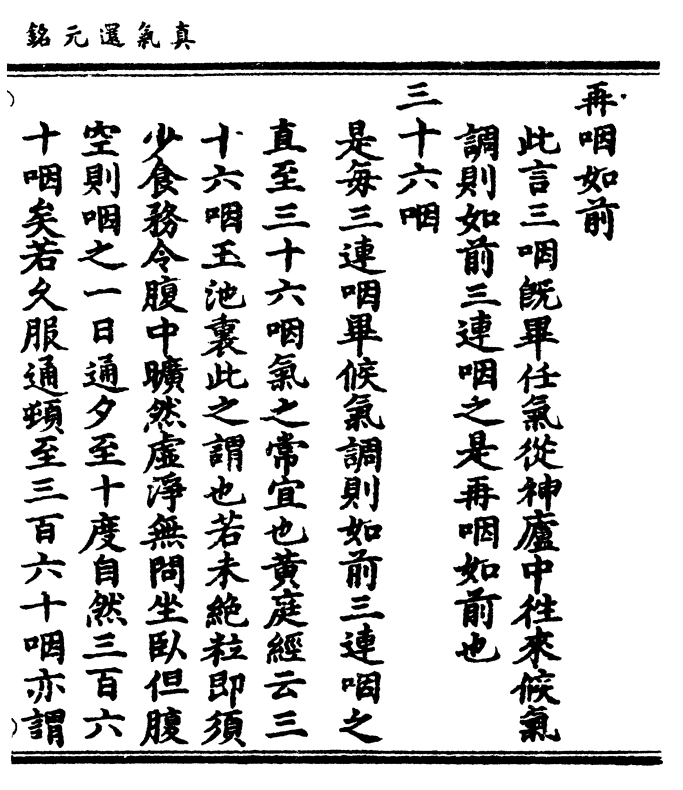 真氣還元銘
再咽如前
此言三咽旣畢任氣從神廬中徃來候氣
調則如前三連咽之是再咽如前也
三十六咽
是每三連咽畢候氣調則如前三連咽之
直至三十六咽氣之常宜也黃庭經云三
十六咽玉池裏此之謂也若未絶粒即須
少食務令腹中曠然虛淨無問坐臥但腹
空則咽之一日通夕至十度自然三百六
十咽矣若久服通頓至三百六十咽亦謂